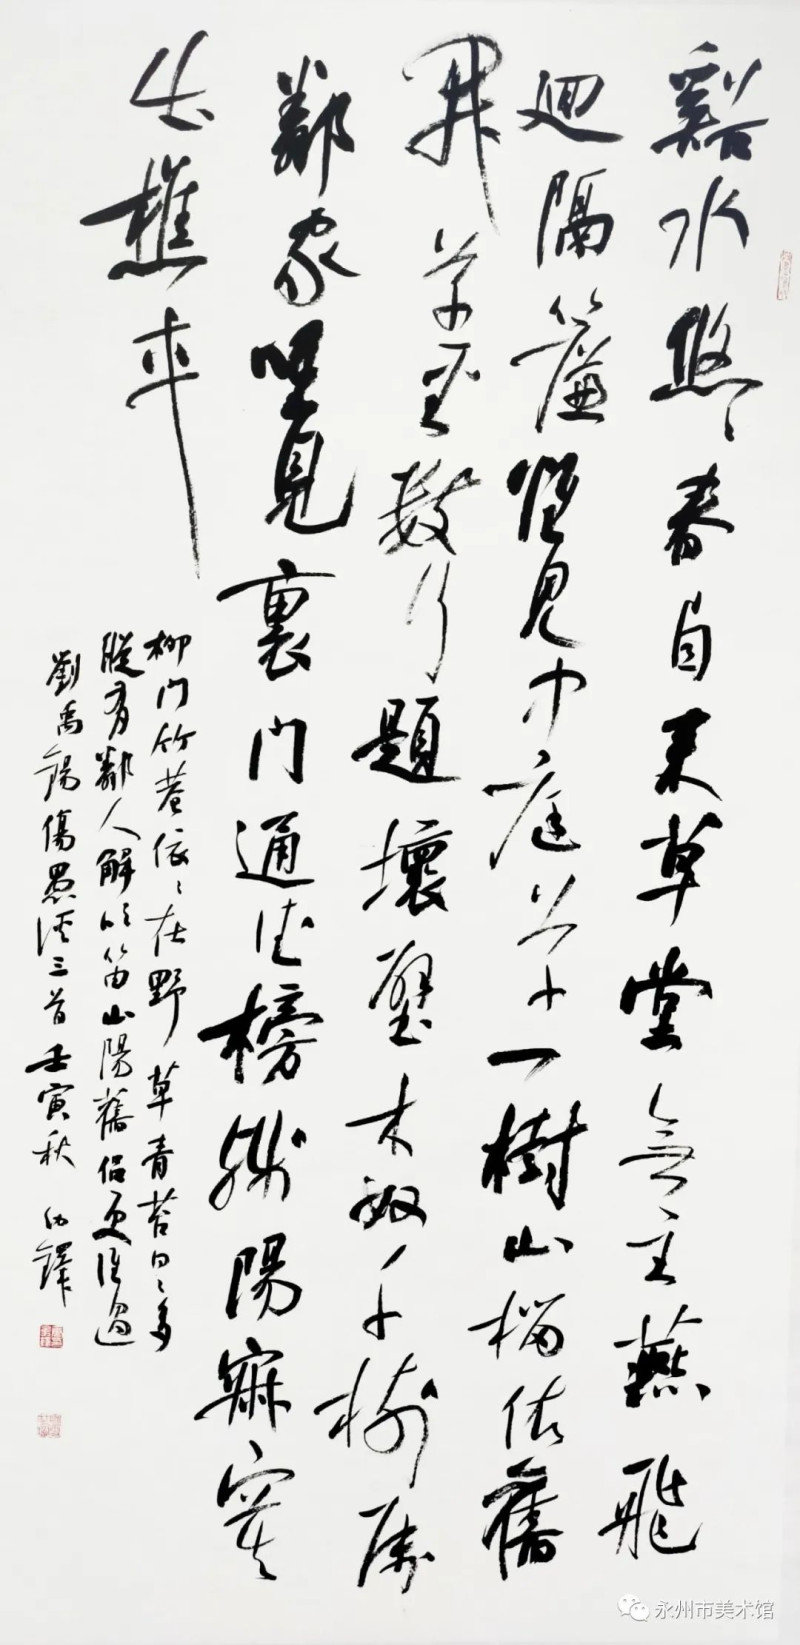 谿水悠〻春自来草堂無主燕飛
迴隔簾惟見中庭草一樹山榴依舊
開草聖數行題壞壁木奴千樹属
鄰家唯見裏門通德榜殘陽寂寞
出樵車
柳門竹巷依〻在野草青苔日〻多
縱有鄰人解吹笛山陽舊侣更誰過
劉禹錫傷愚溪三首壬寅秋 鐸
永州市美术馆